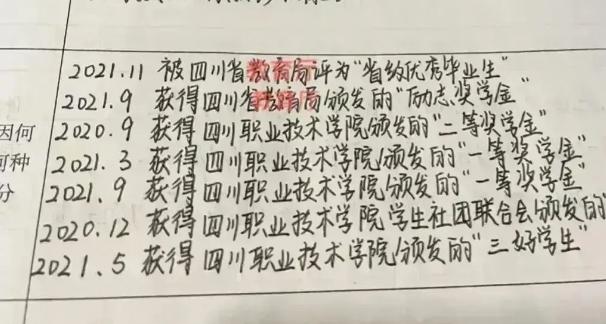 2021.11 被四川省教育局评为"省级优秀毕业生"
2021.9 获得四川省教育局颁发的"励志奖学金"
2020.9 获得四川职业技术学院颁发的"二等奖学金"
2021.3 获得四川职业技术学院颁发的"一等奖学金"
2021.9 获得四川职业技术学院颁发的"一等奖学金"
2020.12 获得四川职业技术学院学生社团联合会颁发的
2021.5 获得四川职业技术学院颁发的"三好学生"
因何
何种
分